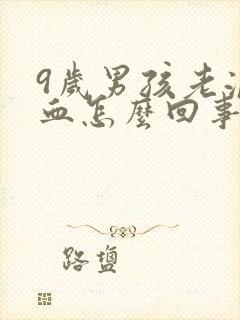 9歲男孩老流
血怎麼回事
路鹽